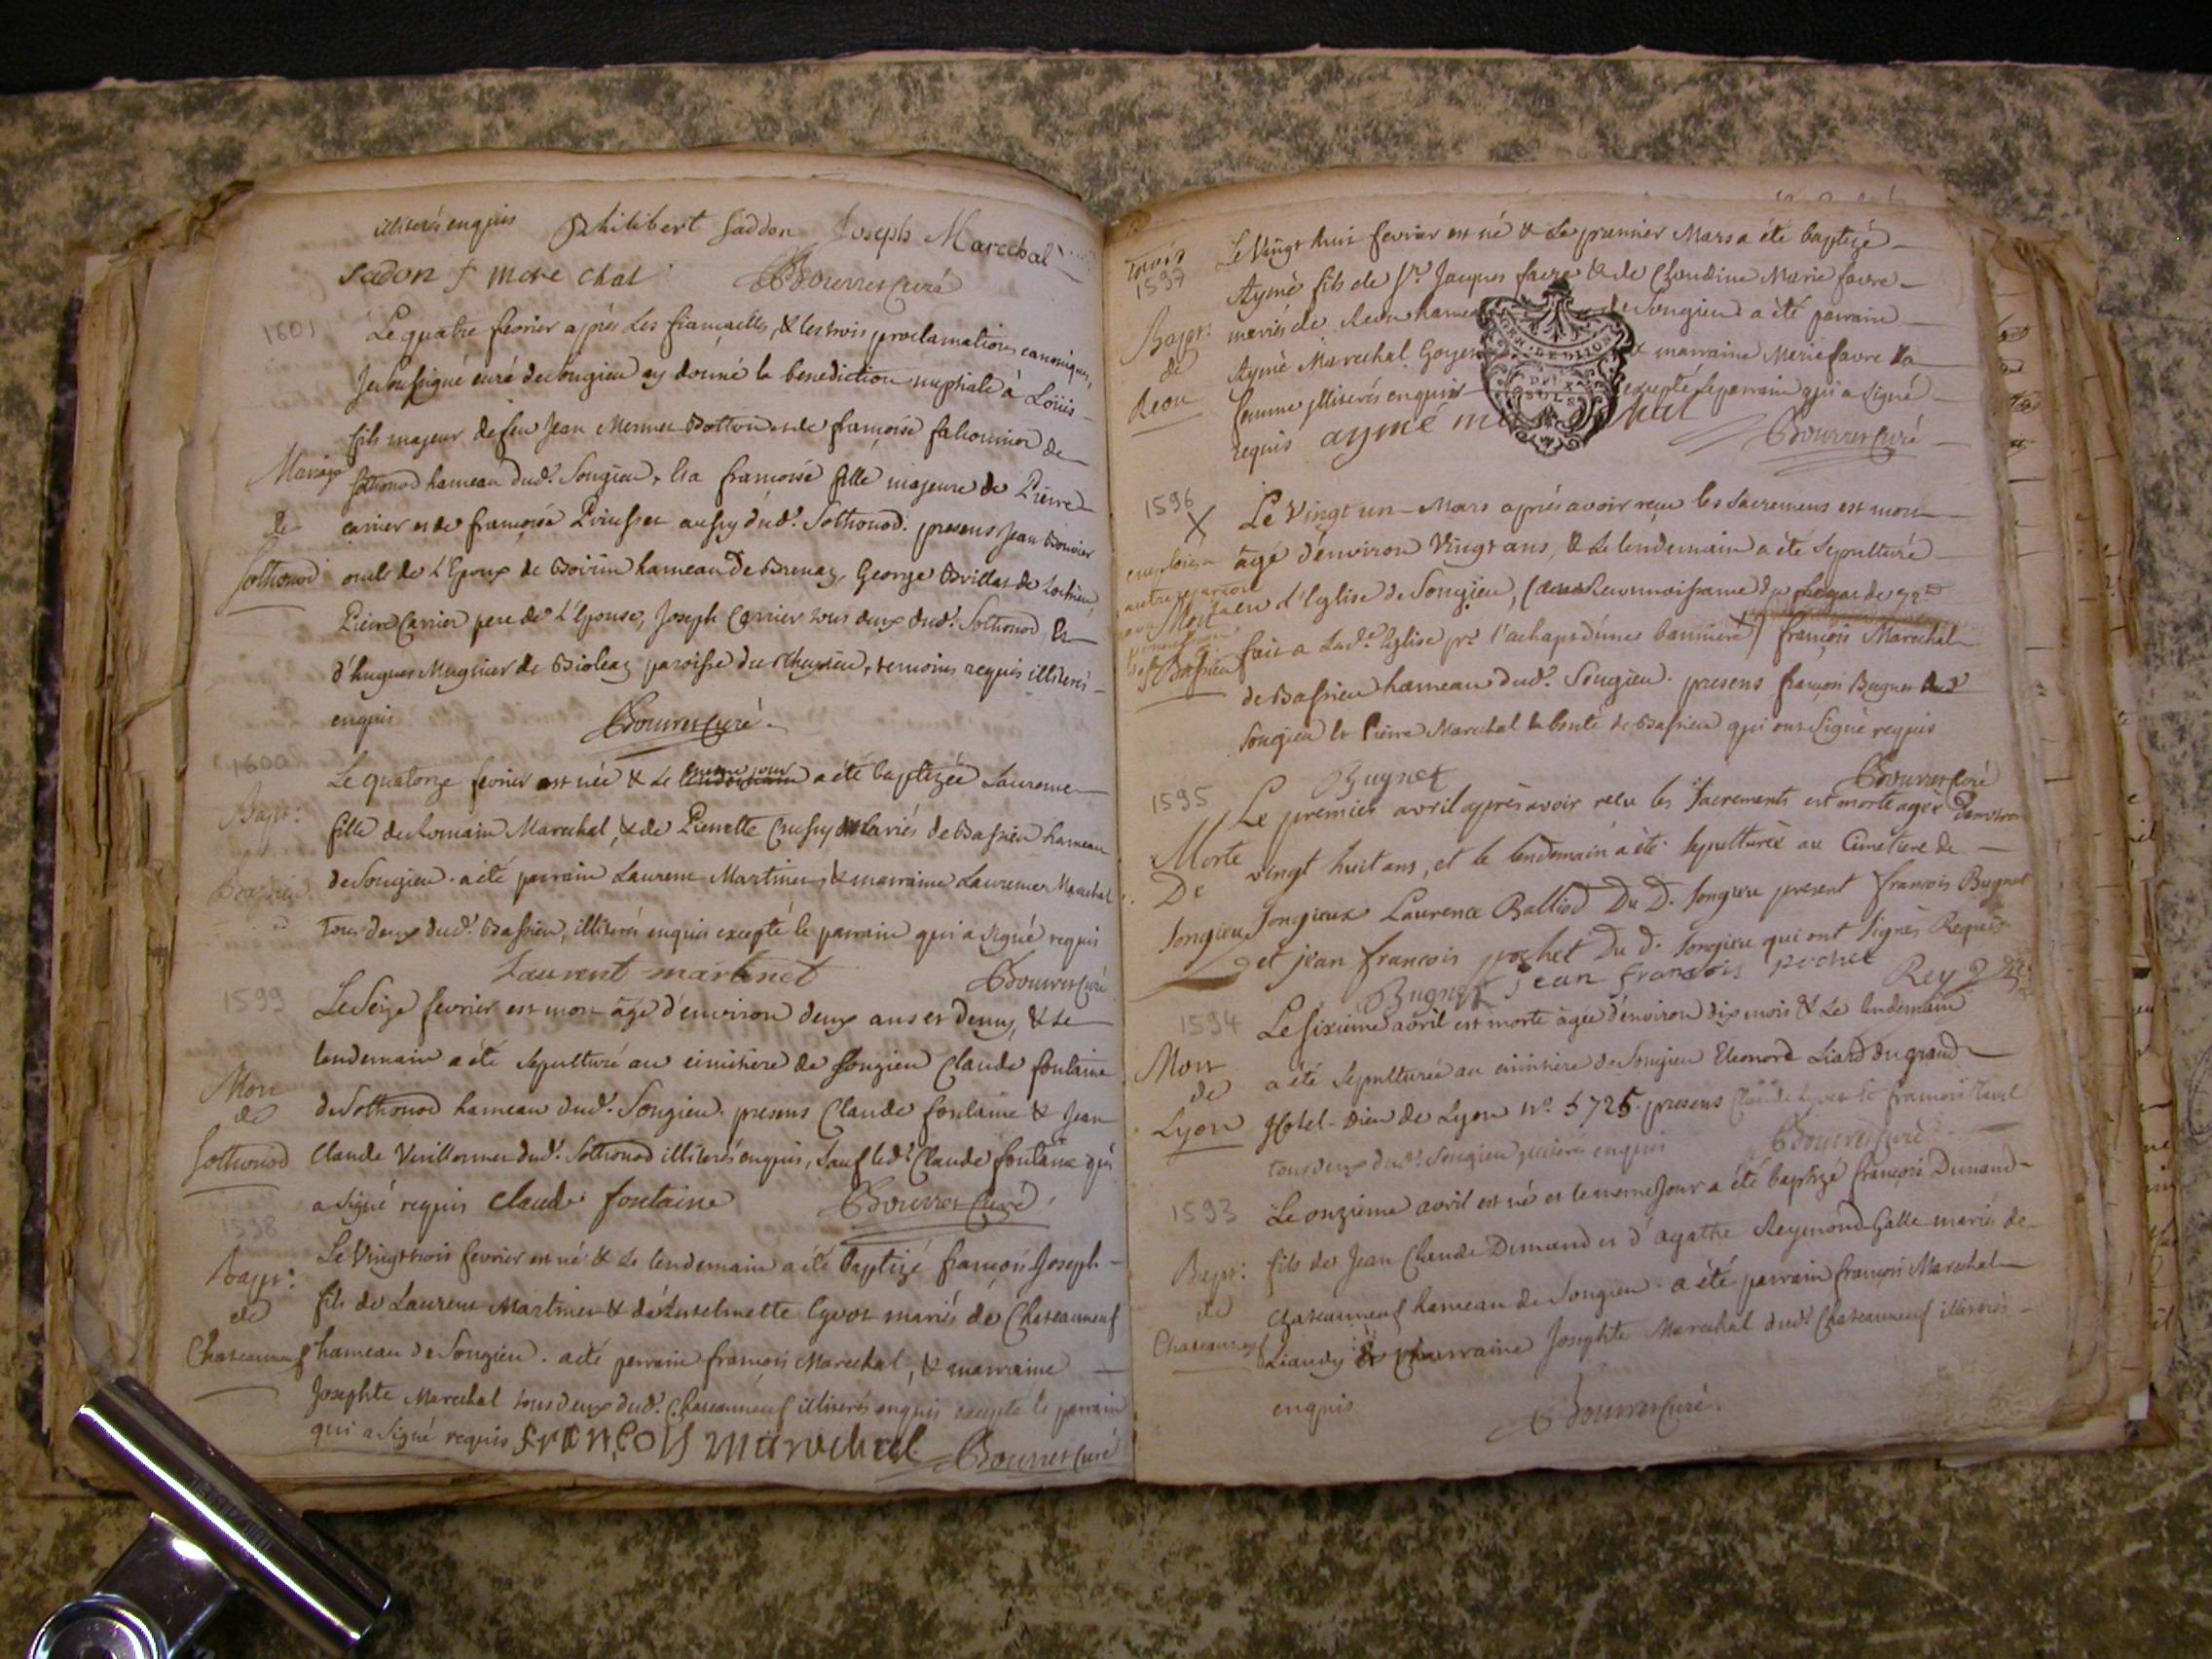 illiterés enquis Philibert Saddon Joseph Marechal
Sadon f mare chal Bourret Curé
1601
Le quatre fevrier après les fiancailles, & les trois proclamations canoniques,
Je soussigné curé de Songieu ay donné la benediction nuptiale à Loüis
fils majeur de feu Jean et de françoise de
Mariage
de
Sothonod
Sothonod hameau dud.t Songieu, Et a francoise fille majeure de Pierre
carrier et de francoise aussy dud.t Sothonod. presens Jean Bouvier
oncle de L'Epoux de hameau de Brenaz, George Brillat de Lochieu,
Pierre Carrier pere de L'Epouse, Joseph Carrier tous deux dud.t Sothonod, Et
d'hugues Mugnier de Bioleaz paroisse de temoins requis illiterés
enquis Bourret Curé
1600
Le quatorze fevrier est née & le meme jour a été baptizée Laurence
Bapt:
fille de Romain Marechal, & de Pierrette mariés de Bassieu hameau
Bassieu
de Songieu. a été parrain Laurent Martinet, & marraine Laurence Marechal
tous deux dud.t Bassieu, illiterés enquis excepté le parrain qui a signé requis
Laurent martinet Bourret Curé
1599
Le Seize fevrier est mort âgé d'environ deux ans et demy, & le
lendemain a été sepulturé au cimitiere de Songieu Claude fontaine
Mort
de
Sothonod
de Sothonod hameau dud.t Songieu. presens Claude fontaine & Jean
Claude dud.t Sothonod illiterés enquis, sauf led.t Claude fontaine qui
a signé requis claude fontaine Bourret Curé
1598
Le Vingt trois fevrier est né & le lendemain a été baptizé françois Joseph
Bapt:
de
Chateauneuf
fils de Laurent Martinet & d'Antelmette Cyvot mariés de Chateauneuf
hameau de Songieu. a été parrain françois Marechal, & marraine
Josephte Marechal tous deux dud.t Chateauneuf illiterés enquis excepté le parrain
qui a signé requis françois marechal Bourret Curé
1597
Le Vingt huit fevrier est né & le premier Mars a été baptizé
Aymé fils de S.r Jacques favre & de Claudine Marie favre
Bapt:
de
Reou
mariés de Reou hameau de Songieu a été parrain
Aymé Marechal Goyet & marraine Marie favre sa
femme illiterés enquis excepté le parrain qui a signé
requis aymé marechal Bourret Curé
1596
X
Le Vingt un Mars après avoir recu les Sacremens est mort
âgé d'environ Vingt ans, & le lendemain a été sepulturé
Mort
Bassieu
en l'Eglise de Songieu,
fait a lad.e Eglise p.r l'achapt d'une banniere) françois Marechal
de Bassieu hameau dud.t Songieu. presens françois Bugnet dud.t
Songieu et Pierre Marechal de Bassieu qui ont signé requis
Bugnet Bourret Curé
1595
Le premier avril après avoir recu les Sacrements est morte agée d'environ
Morte
De
Songieu
vingt huit ans, et le lendemain a été sepulturée au Cimetiere de
Songieux Laurence Balliod Du D. Songieu present francois Bugnet
et jean francois pochet Du D. Songieu qui ont signés Requis
Bugnet jean francois pochet Rey
1594
Le sixieme avril est morte âgée d'environ dix mois & le lendemain
Mort
de
Lyon
a été sepulturée au cimitiere de Songieu Eleonord Liard du grand
Hotel-Dieu de Lyon N.o 5725. presens
tous deux dud.t Songieu illiterés enquis Bourret Curé
1593
Le onzieme avril est né et le meme jour a été baptizé françois Dumand
Bapt:
de
Chateauneuf
fils de Jean Claude Dumand et d'agathe Reymond Galle mariés de
Chateauneuf hameau de Songieu. a été parrain françois Marechal
Liaudy & marraine Josephte Marechal dud.t Chateauneuf illiterés
enquis
Bourret Curé.